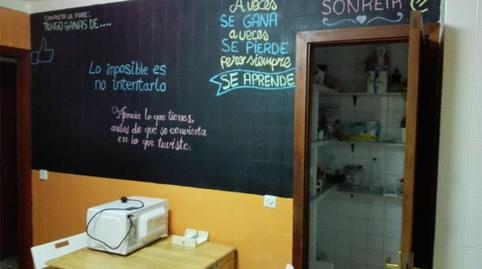 COMPLETA LA FRASE:
TENGO GANAS DE....
Lo imposible es
no intentarlo
Aprecia lo que tienes,
antes de que se convierta
en lo que tuviste.
A veces
SE GANA
a veces
SE PIERDE
pero siempre
SE APRENDE
SONRÍE